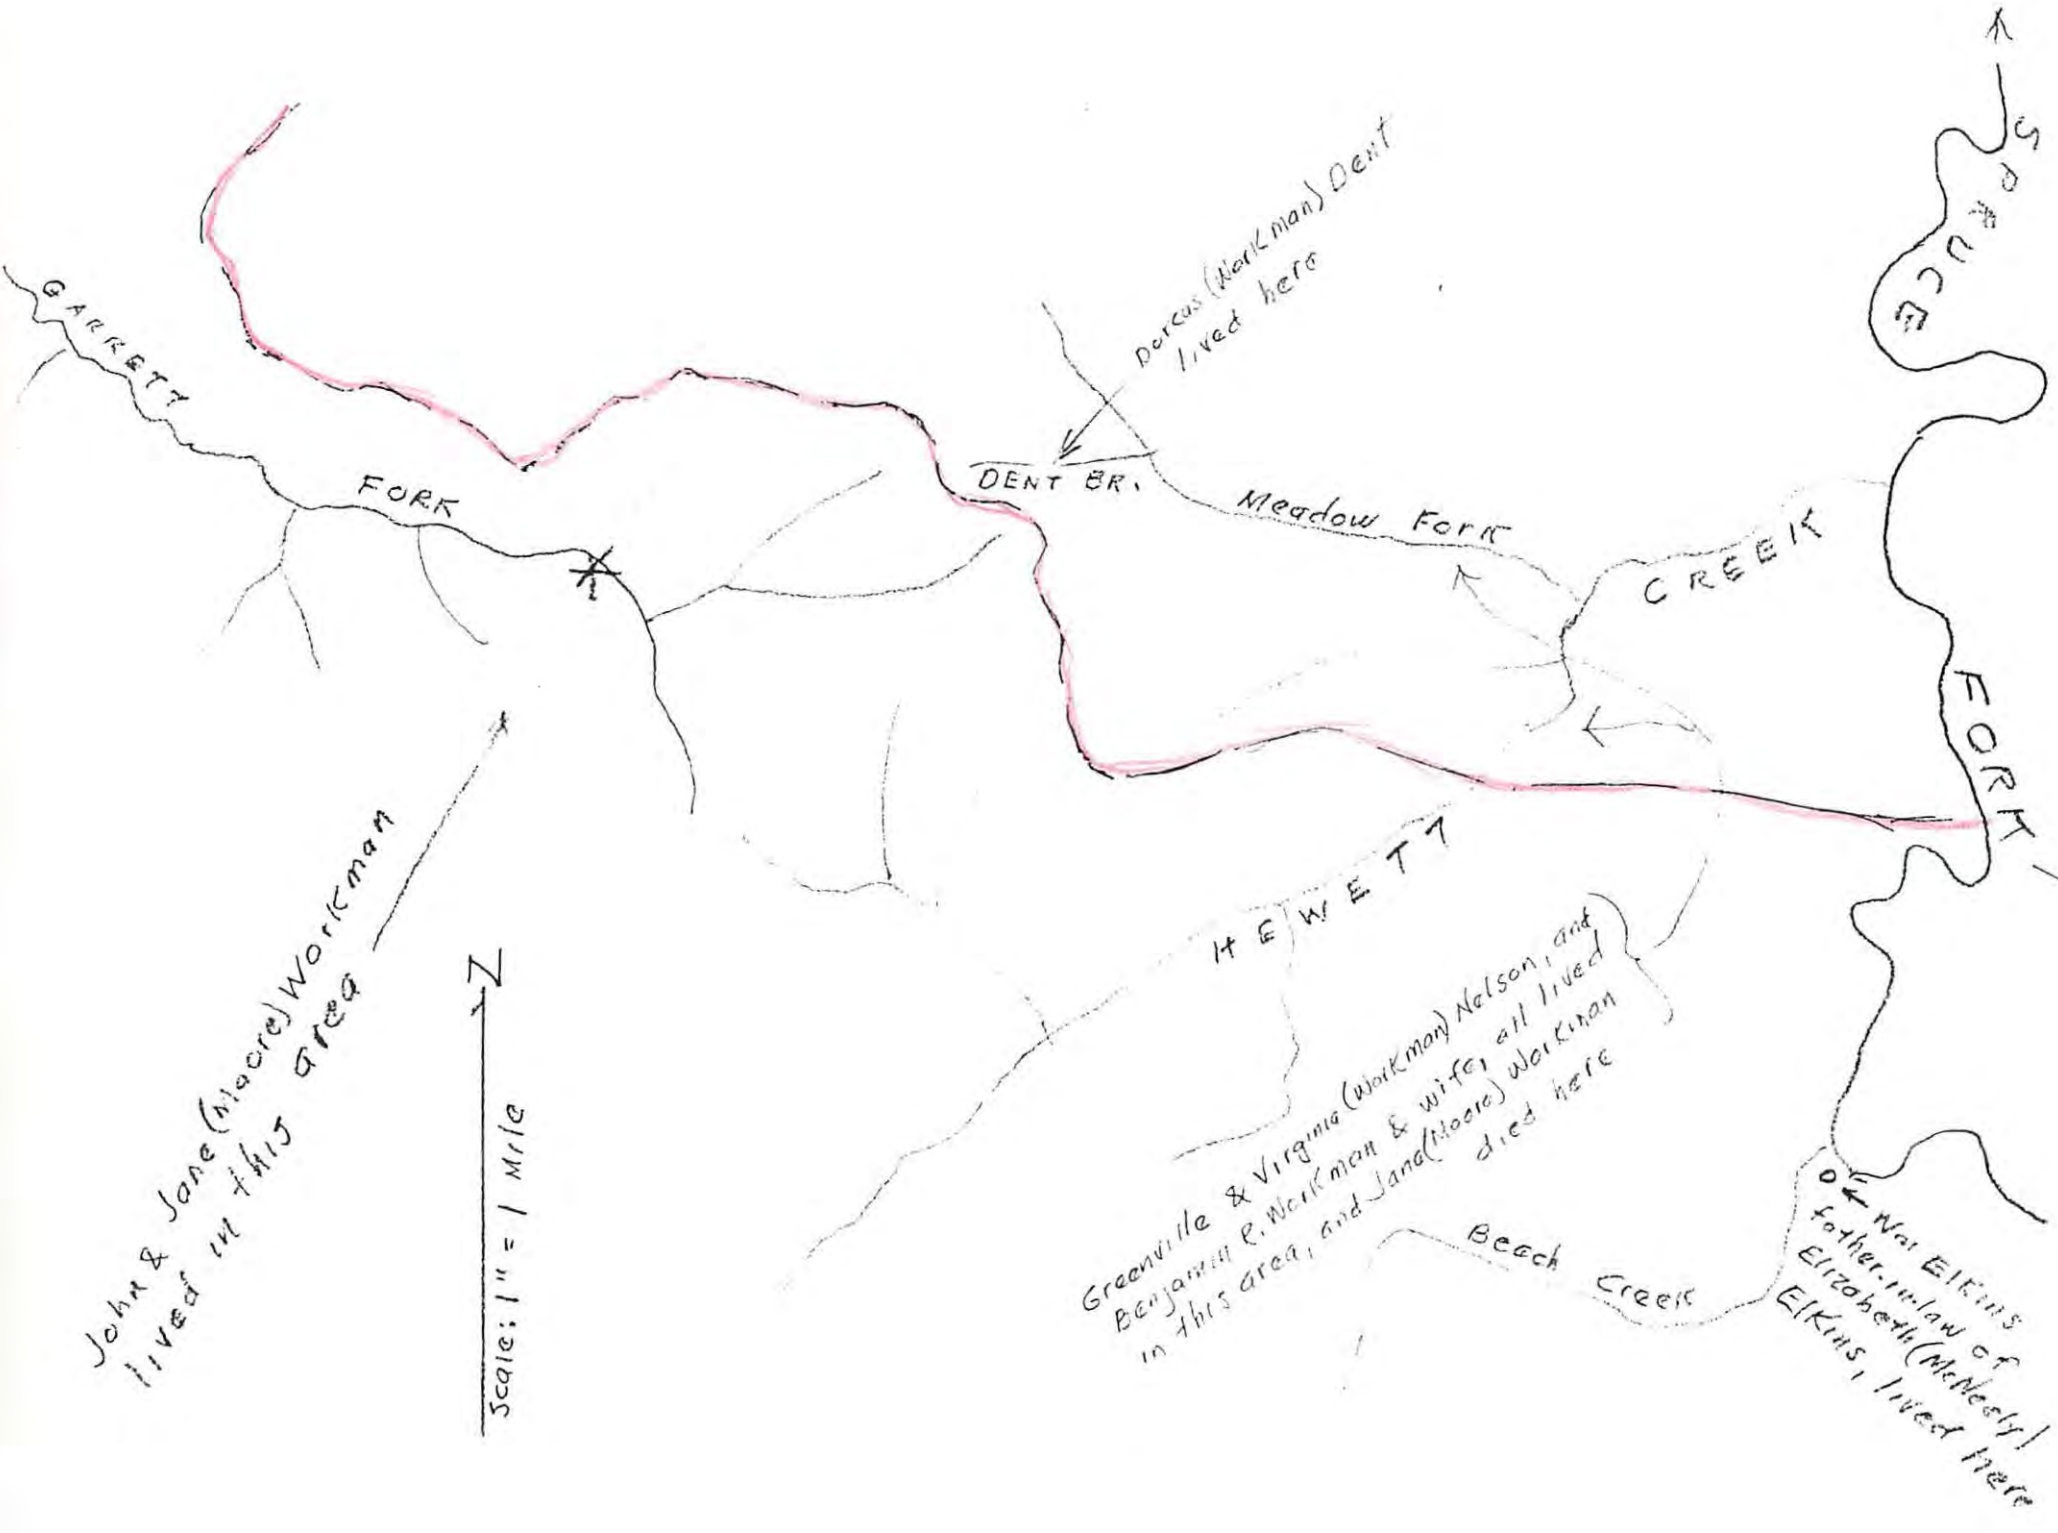 SPRUCE
FORK
GARRETT
FORK
Dorcas (Workman) Dent
lived here
DENT BR.
Meadow Fork
CREEK
HEWETT
John & Jane (Moore) Workman
lived in this area
N
Scale: 1" = 1 Mile
Greenville & Virginia (Workman) Nelson, and
Benjamin R. Workman & wife, all lived
in this area, and Jane (Moore) Workman
died here
Beech Creek
Wm Elkins
father-in-law of
Elizabeth (McNeely)
Elkins, lived here